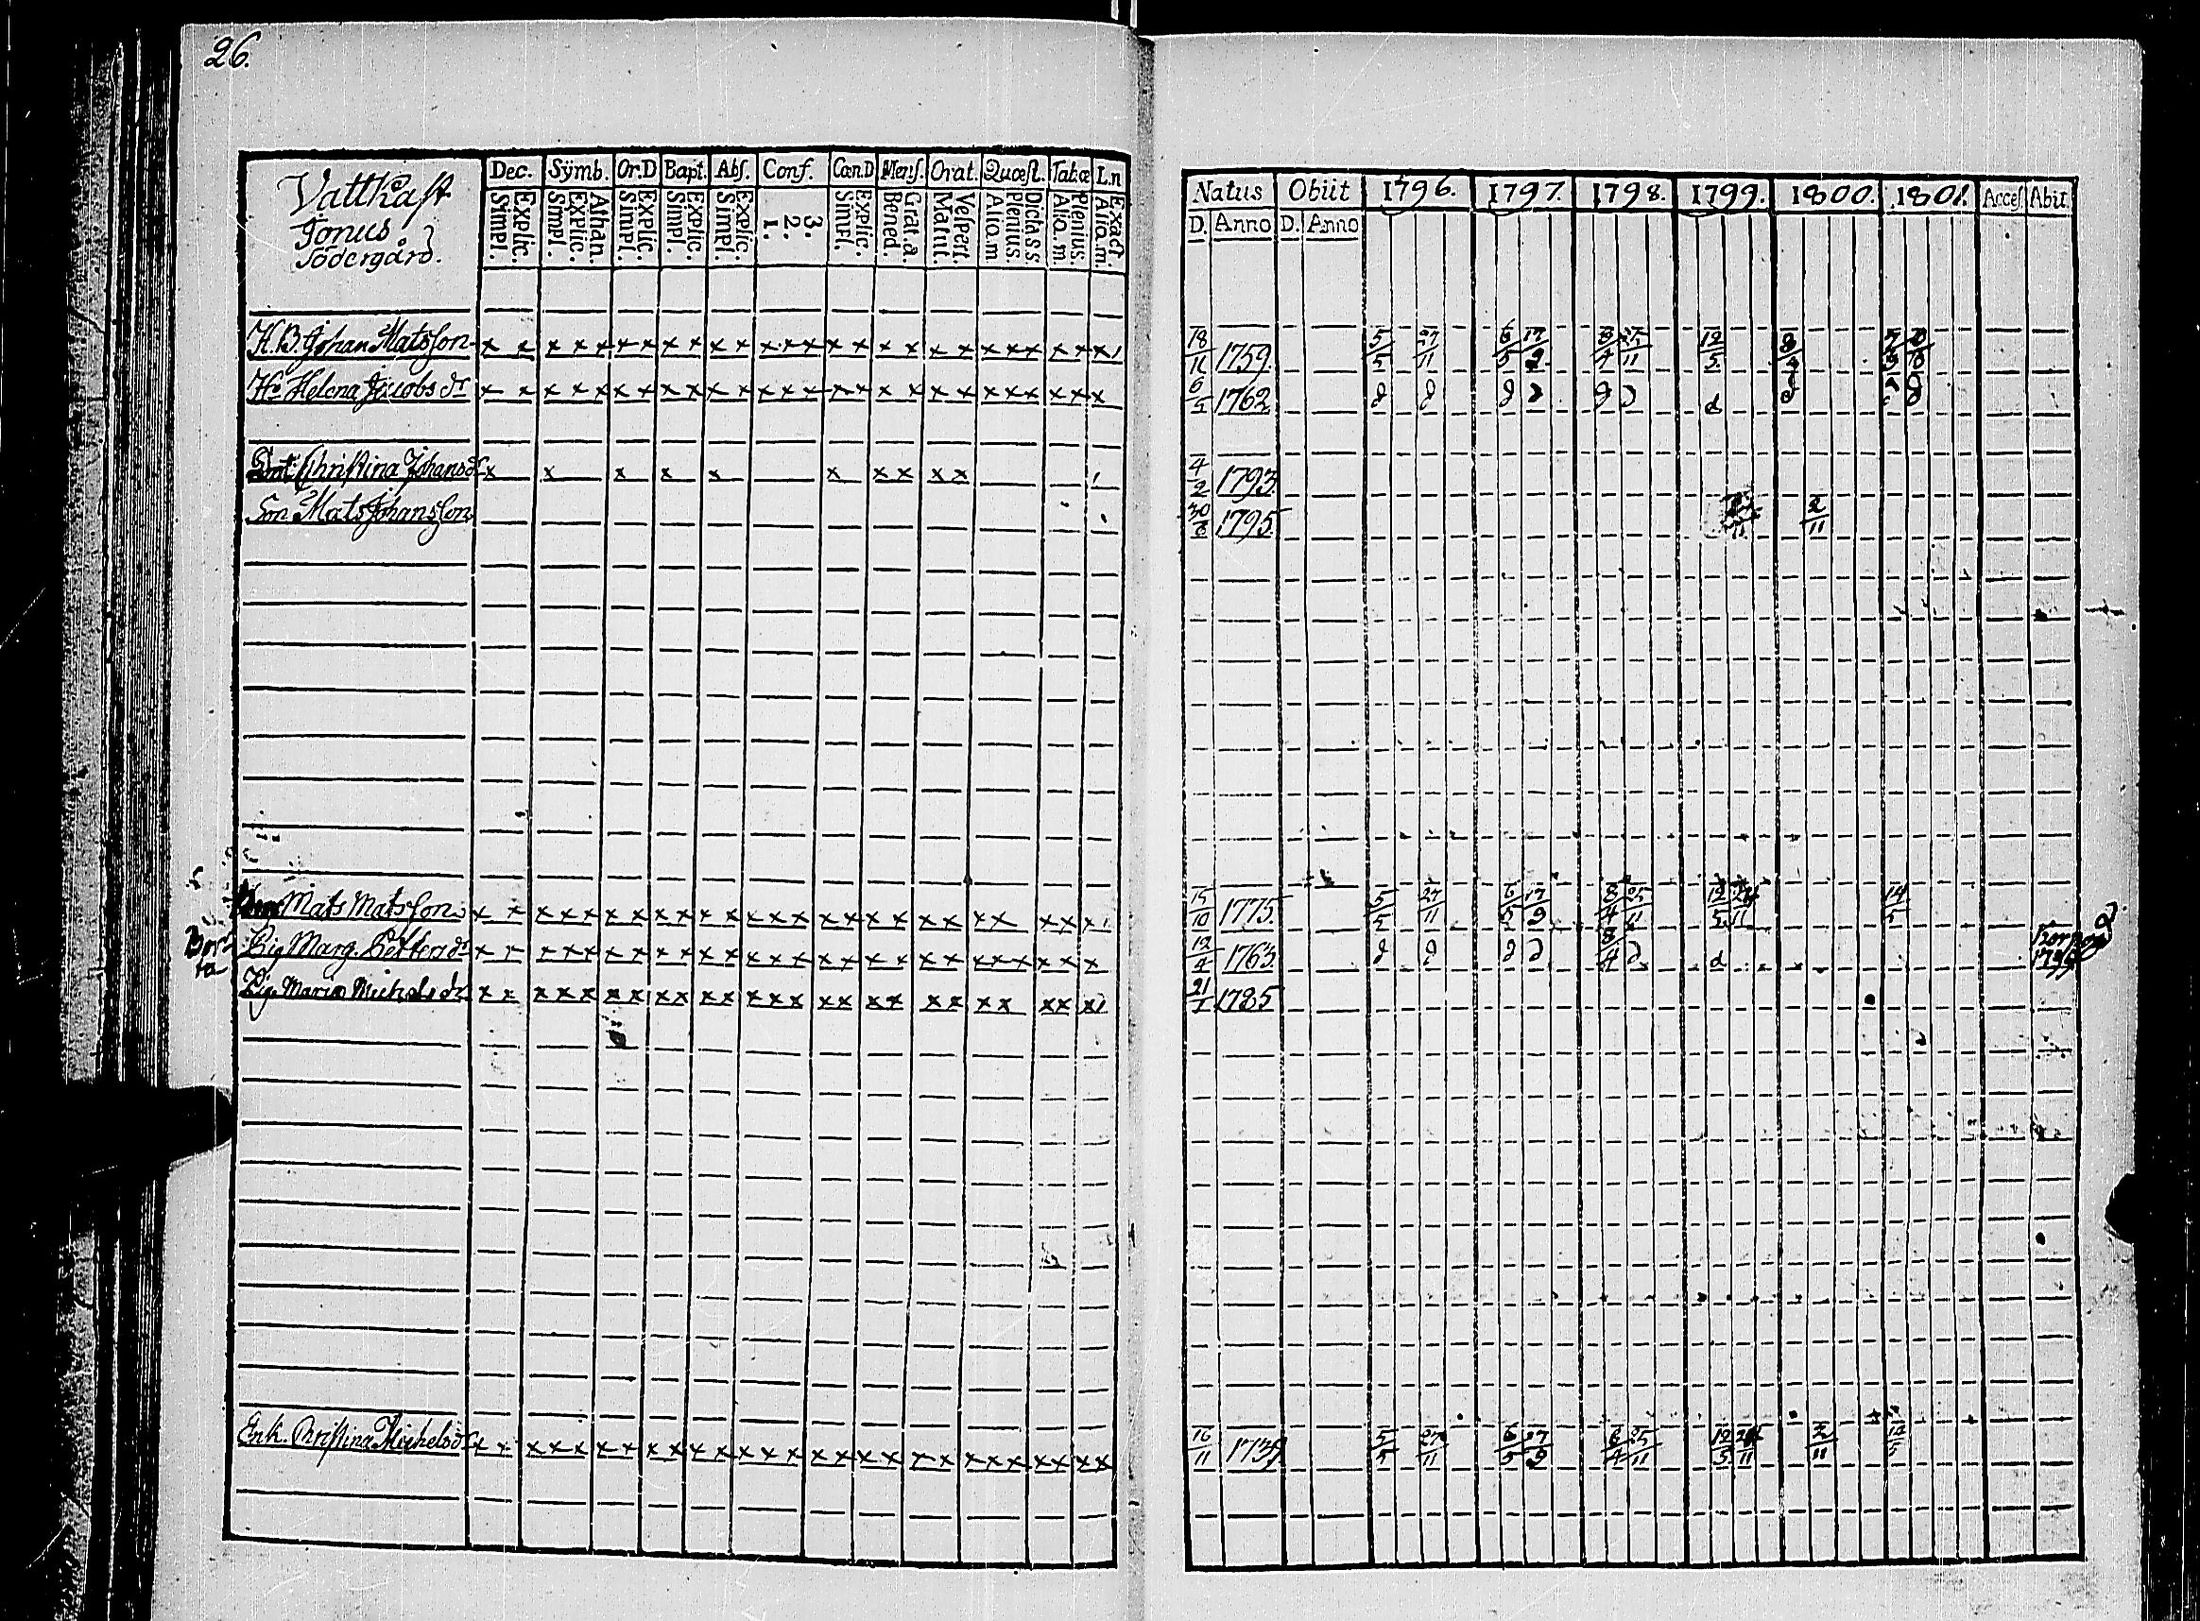 26.
Vattkast
Jonus
Södergård.
Dec. Sÿmb. Or.D Bapt. Abs. Conf. Cæn.D Mens. Orat. Quæst. Tabæ L.n
Simpl. Explic. Simpl. Explic. Athan. Simpl. Explic. Simpl. Explic. Simpl. Explic. 1. 2. 3. Simpl. Explic. Bened. Grat.a. Matut. Vespert. Alio.m Plenius Dicta s.s. Alio.m Plenius. Alio.m. Exact.
Natus Obiit 1796. 1797. 1798. 1799. 1800. 1801. Acces. Abit.
D. Anno D. Anno
H.B. Johan Matsson x x x x x x x x x x x x x x x x x x x x x x x x x x 18/11 1759. 5/5 27/11 6/5 17/9 8/4 25/11 12/5
Hu Helena Jacobs dr x x x x x x x x x x x x x x x x x x x x x x x x x 6/5 1762
Dot. Christina Johansdr x x x x x x x x x x 4/2 1793.
Son Mats Johansson 30/8 1795. 2/11
Mats Matsson x x x x x x x x x x x x x x x x x x x x x x x x x 15/10 1775. 5/5 27/11 6/5 17/9 8/4 25/11 12/5 24/11 14/5
Bort
Pig Marg. Petters dr x x x x x x x x x x x x x x x x x x x x x x x x x 12/4 1763. 8/4 Korpo 1799
Pig. Maria Michels dr x x x x x x x x x x x x x x x x x x x x x x x x 21/1 1785
Enk. Christina Michelsdr x x x x x x x x x x x x x x x x x x x x x x x x x x 16/11 5/5 27/11 6/5 17/9 8/4 25/11 12/5 24/11 2/11